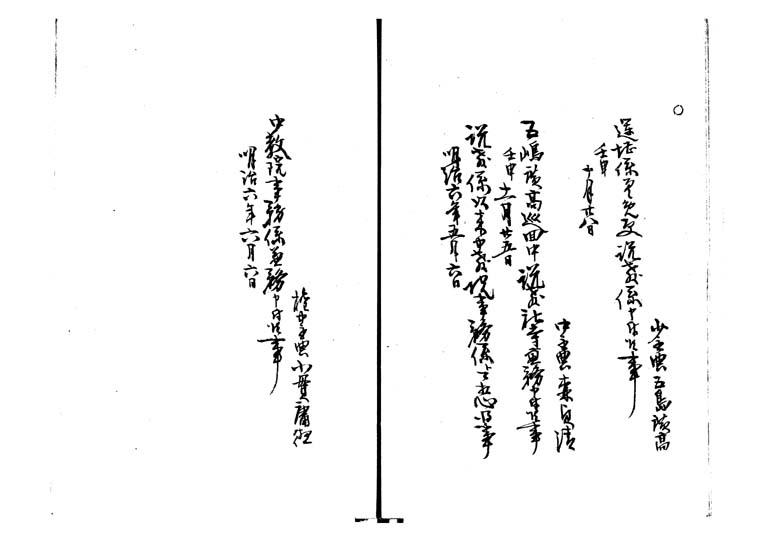 ○
少主典五島広高
選挙係差免更説教係申付候事
壬申
十月廿八日
中主典森自清
五嶋広高巡回中説教社寺兼務申付候事
壬申十一月廿五日
説教係以来中教院事務係与可相心得事
明治六年五月六日
権中主典小貫庸徳
中教院事務係兼務申付候事
明治六年六月六日